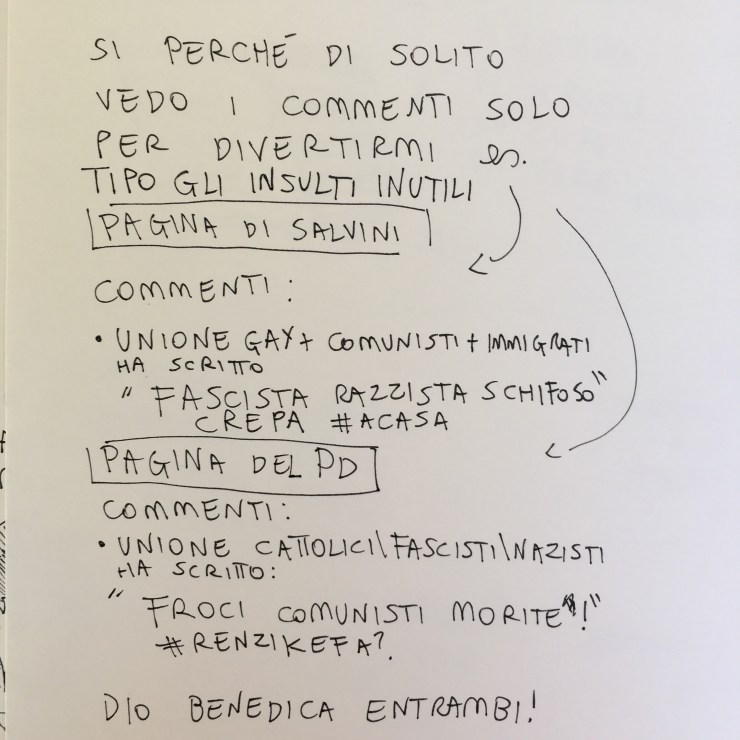 SI PERCHÉ DI SOLITO
VEDO I COMMENTI SOLO
PER DIVERTIRMI es.
TIPO GLI INSULTI INUTILI
PAGINA DI SALVINI
COMMENTI:
• UNIONE GAY + COMUNISTI + IMMIGRATI
HA SCRITTO
"FASCISTA RAZZISTA SCHIFOSO"
CREPA #ACASA
PAGINA DEL PD
COMMENTI:
• UNIONE CATTOLICI\FASCISTI\NAZISTI
HA SCRITTO:
"FROCI COMUNISTI MORITE!"
#RENZIKEFA?
DIO BENEDICA ENTRAMBI!